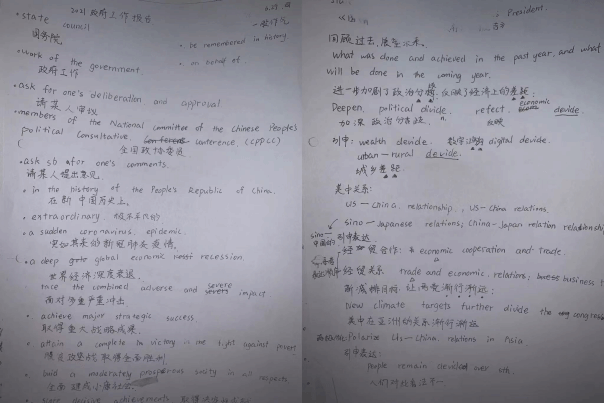 2021 政府工作报告
• state council
国务院
• be remembered in history
• work of the government
• on behalf of
政府工作
• ask for one's deliberation and approval
请某人审议
• members of the National committee of the Chinese People's
political Consultative conference (CPPCC)
全国政协委员
• ask sb for one's comments.
请某人提出意见
• in the history of the People's Republic of China.
在新中国历史上。
• extraordinary 极不平凡的
• a sudden coronavirus epidemic.
突如其来的新冠肺炎疫情。
• a deep global economic recession.
世界经济深度衰退.
face the combined adverse and severe impact
面对多重严重冲击
• achieve major strategic success
取得重大战略成果.
• attain a complete victory in the fight against
脱贫攻坚战取得全面胜利
• build a moderately prosperous society in all respects
全面建成小康社会
decisive achievements
President.
回顾过去,展望未来。
What was done and achieved in the past year, and what
will be done in the coming year.
进一步加剧了政治分歧,反映了经济上的差距.
Deepen political divide. reflect economic devide.
加深政治分歧. 反映
引申: wealth devide. 数字鸿沟 digital devide.
urban-rural devide.
城乡差距.
美中关系:
US-China relationship., US-China relations.
sino-Japanese relations; China-Japan relation relationship
引申表达.
经贸合作: economic cooperation and trade.
经贸关系 trade and economic relations; business
新减排目标 让两党渐行渐远:
New climate targets further divide the congress
美中在亚洲的关系渐行渐远
Polarize Us-China relations in Asia
引申表达:
people remain devided over sth.
人们对此看法不一